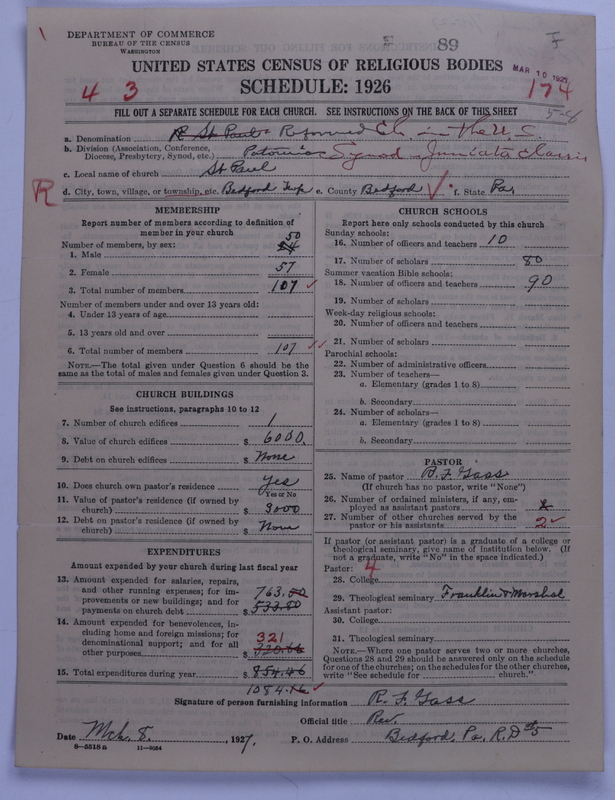 DEPARTMENT OF COMMERCE
BUREAU OF THE CENSUS
WASHINGTON
89
UNITED STATES CENSUS OF RELIGIOUS BODIES
MAR 10 1927
SCHEDULE: 1926
4 3
174
FILL OUT A SEPARATE SCHEDULE FOR EACH CHURCH. SEE INSTRUCTIONS ON THE BACK OF THIS SHEET
a. Denomination St Pauls Reformed Ch. in the U.S.
b. Division (Association, Conference, Diocese, Presbytery, Synod, etc.) Potomac Synod Juniata Classis
c. Local name of church St Paul
R
d. City, town, village, or township, etc. Bedford Twp e. County Bedford f. State Pa
MEMBERSHIP
Report number of members according to definition of member in your church
Number of members, by sex:
1. Male 50
2. Female 57
3. Total number of members 107
Number of members under and over 13 years old:
4. Under 13 years of age
5. 13 years old and over
6. Total number of members 107
NOTE.—The total given under Question 6 should be the same as the total of males and females given under Question 3.
CHURCH BUILDINGS
See instructions, paragraphs 10 to 12
7. Number of church edifices 1
8. Value of church edifices $ 6000.
9. Debt on church edifices $ None
10. Does church own pastor's residence Yes
Yes or No
11. Value of pastor's residence (if owned by church) $ 3000
12. Debt on pastor's residence (if owned by church) $ None
EXPENDITURES
Amount expended by your church during last fiscal year
13. Amount expended for salaries, repairs, and other running expenses; for improvements or new buildings; and for payments on church debt $ 763.50 533.80
14. Amount expended for benevolences, including home and foreign missions; for denominational support; and for all other purposes $ 321
15. Total expenditures during year $ 854.46
1084.16
CHURCH SCHOOLS
Report here only schools conducted by this church
Sunday schools:
16. Number of officers and teachers 10
17. Number of scholars 80
Summer vacation Bible schools:
18. Number of officers and teachers 90
19. Number of scholars
Week-day religious schools:
20. Number of officers and teachers
21. Number of scholars
Parochial schools:
22. Number of administrative officers
23. Number of teachers—
a. Elementary (grades 1 to 8)
b. Secondary
24. Number of scholars—
a. Elementary (grades 1 to 8)
b. Secondary
PASTOR
25. Name of pastor R. F. Gass
(If church has no pastor, write "None")
26. Number of ordained ministers, if any, employed as assistant pastors
27. Number of other churches served by the pastor or his assistants 2
If pastor (or assistant pastor) is a graduate of a college or theological seminary, give name of institution below. (If not a graduate, write "No" in the space indicated.)
Pastor: 4
28. College
29. Theological seminary Franklin & Marshal
Assistant pastor:
30. College
31. Theological seminary
NOTE.—Where one pastor serves two or more churches, Questions 28 and 29 should be answered only on the schedule for one of the churches; on the schedules for the other churches, write "See schedule for church."
Signature of person furnishing information R. F. Gass
Official title Rev.
Date Mch. 8., 1927. P. O. Address Bedford, Pa, R.D #5
8—5518a 11—9054